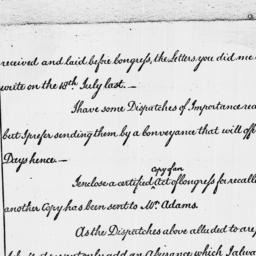 received and laid before Congress, the Letters you did me
write on the 18th July last.—
I have some Dispatches of Importance rea
but I prefer sending them by a conveyance that will off
Days hence.—
Copy of an
I enclose a certified Act of Congress for recalle
another Copy has been sent to Mr. Adams.
As the Dispatches above alluded to are
only add an Assurance which I alwa